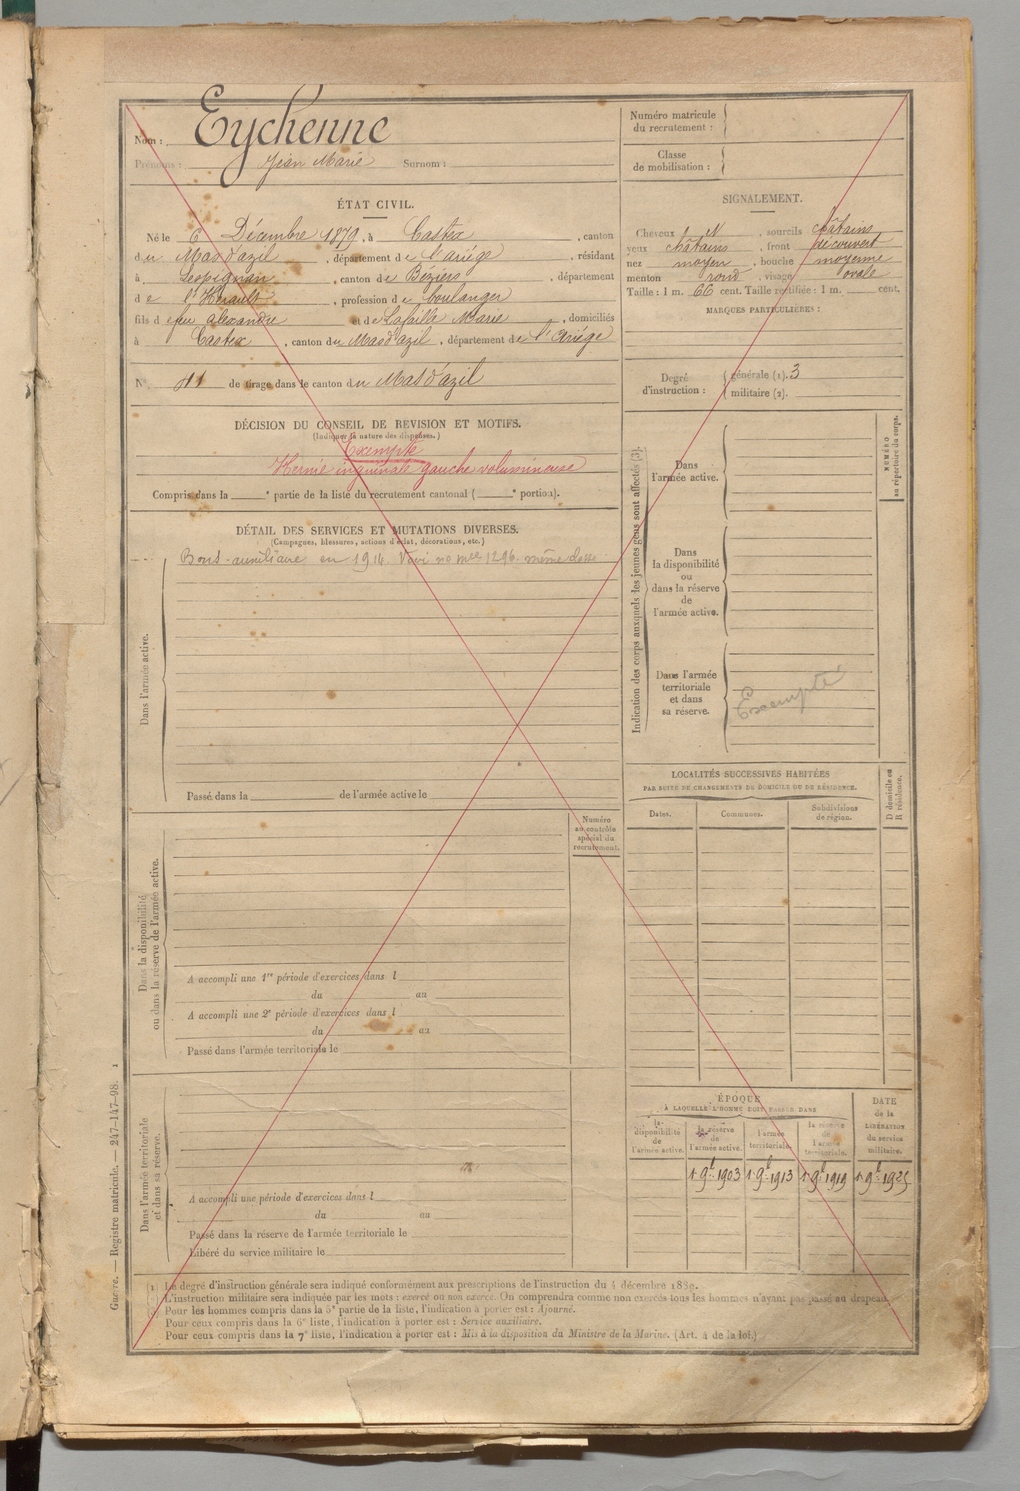 Nom : Eychenne
Prénoms : Jean Marie Surnom :
Numéro matricule
du recrutement :
Classe
de mobilisation :
ÉTAT CIVIL.
Né le 6 Décembre 1879, à Castex, canton
du Mas d'azil, département de l'ariège, résidant
à Lespignan, canton de Béziers, département
de l'Hérault, profession de boulanger
fils de feu alexandre et de Lafaille Marie, domiciliés
à Castex, canton du Mas d'azil, département de l'Ariége
N° de tirage dans le canton du Mas d'azil
SIGNALEMENT.
Cheveux N, sourcils châtains
yeux châtains, front découvert
nez moyen, bouche moyenne
menton rond, visage ovale
Taille : 1 m. 66 cent. Taille rectifiée : 1 m. cent.
MARQUES PARTICULIÈRES :
Degré
d'instruction :
générale (1). 3
militaire (2).
DÉCISION DU CONSEIL DE REVISION ET MOTIFS.
(Indiquer la nature des dispenses.)
Exempté
Hernie inguinale gauche volumineuse
Compris dans la e partie de la liste du recrutement cantonal ( e portion).
DÉTAIL DES SERVICES ET MUTATIONS DIVERSES.
(Campagnes, blessures, actions d'éclat, décorations, etc.)
Bon s. auxiliaire en 1914. Voir no mle 1296 même classe
Dans l'armée active.
Passé dans la de l'armée active le
Indication des corps auxquels les jeunes gens sont affectés (3).
Dans
l'armée active.
Dans
la disponibilité
ou
dans la réserve
de
l'armée active.
Dans l'armée
territoriale
et dans
sa réserve.
Exempté
NUMÉRO
au répertoire du corps.
LOCALITÉS SUCCESSIVES HABITÉES
PAR SUITE DE CHANGEMENTS DE DOMICILE OU DE RÉSIDENCE.
Dates.
Communes.
Subdivisions
de région.
D domicile ou
R résidence.
Numéro
au contrôle
spécial du
recrutement.
Dans la disponibilité
ou dans la réserve de l'armée active.
A accompli une 1re période d'exercices dans l
du au
A accompli une 2e période d'exercices dans l
du au
Passé dans l'armée territoriale le
Dans l'armée territoriale
et dans sa réserve.
A accompli une période d'exercices dans l
du au
Passé dans la réserve de l'armée territoriale le
Libéré du service militaire le
ÉPOQUE
À LAQUELLE L'HOMME DOIT PASSER DANS
la
disponibilité
de
l'armée active.
la réserve
de
l'armée active.
l'armée
territoriale.
la réserve
de
l'armée
territoriale.
DATE
de la
LIBÉRATION
du service
militaire.
1 9bre 1903 1 9bre 1913 1 9bre 1919 1 9bre 1925
(1) Le degré d'instruction générale sera indiqué conformément aux prescriptions de l'instruction du 4 décembre 1889.
L'instruction militaire sera indiquée par les mots : exercé ou non exercé. On comprendra comme non exercés tous les hommes n'ayant pas passé au drapeau.
Pour les hommes compris dans la 5e partie de la liste, l'indication à porter est : Ajourné.
Pour ceux compris dans la 6e liste, l'indication à porter est : Service auxiliaire.
Pour ceux compris dans la 7e liste, l'indication à porter est : Mis à la disposition du Ministre de la Marine. (Art. 4 de la loi.)
Guerre. — Registre matricule. — 247-147-98. 1